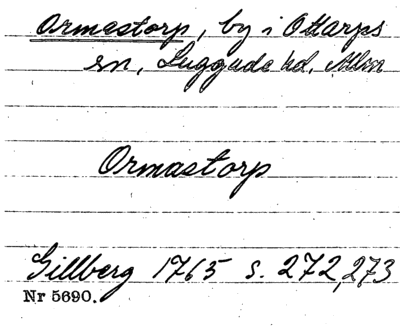 Ormastorp, by i Ottarps
sn, Luggude hd, Mlm
Ormastorp
Gillberg 1765 s. 272, 273
Nr 5690.